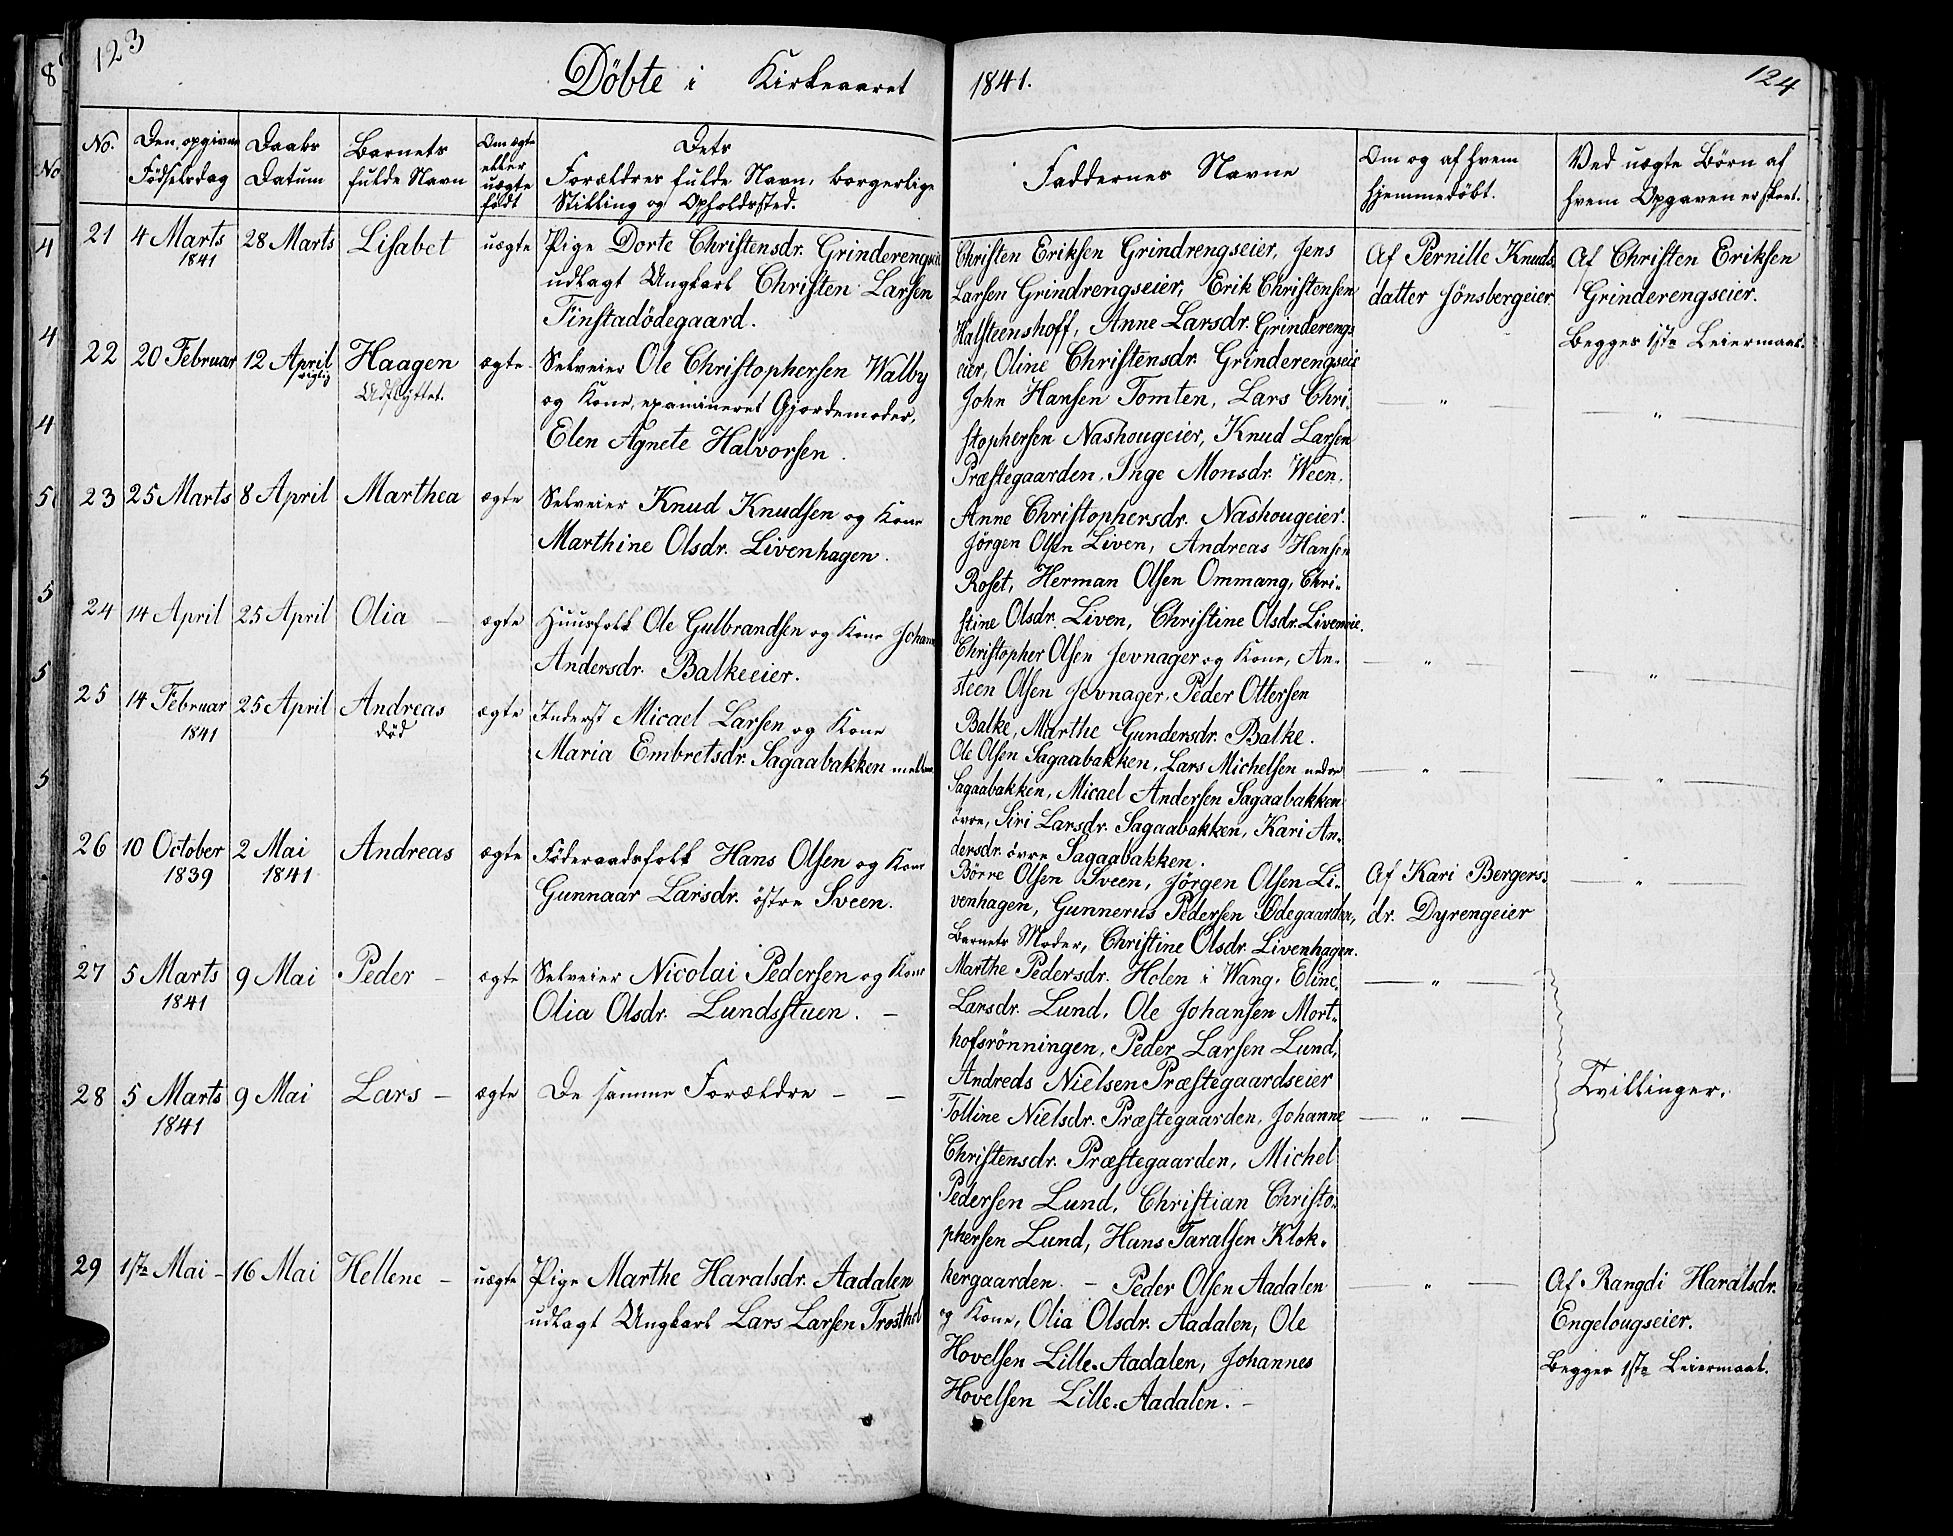 123
Döbte i Kirkeaaret
1841.
124
No.
Den opgivne
Födselsdag
Daabs
Datum
Barnets
fulde Navn
Om ægte
eller
uægte
født
Dets
Forældres fulde Navn, borgerlige
Stilling og Opholdssted.
Faddernes Navne
Om og af hvem
hjemmedöbt.
Ved uægte Börn af
hvem Opgaven er skeet.
21 4 Marts 28 Marts Lisabet uægte Pige Dorte Christensdr. Grinderengseie
1841
udlagt Ungkarl Christen Larsen
Finstadödegaard.
Christen Eriksen Grindrengseier, Jens
Larsen Grindrengseier, Erik Christensen
Halsteenshoff, Anne Larsdr. Grinderengs
eier, Oline Christensdr. Grinderengseie
Af Pernille Knuds
datter Jönsbergeier
Af Christen Eriksen
Grinderengseier.
Begges 1ste Leiermaal.
22 20 Februar 12 April Haagen ægte Selveier Ole Christophersen Walby
rigtig
Udflyttet.
og Kone, examineret Gjordemoder,
Elen Agnete Halvorsen.
John Hansen Tomten, Lars Chri-
stophersen Nashougeier, Knud Larsen
Præstegaarden, Inge Monsdr. Ween,
Anne Christophersdr. Nashougeier.
— " —
— " —
23 25 Marts 8 April Marthea ægte Selveier Knud Knudsen og Kone
Marthine Olsdr. Livenhagen.
Jörgen Olsen Liven, Andreas Hansen
Roset, Herman Olsen Ommang, Chri-
stine Olsdr. Liven, Christine Olsdr. Liveneie.
— " —
24 14 April 25 April Olia — ægte Huusfolk Ole Gulbrandsen og Kone Johanne
Andersdr. Balkeeier.
Christopher Olsen Jevnager og Kone, An-
steen Olsen Jevnager, Peder Ottersen
Balke, Marthe Gundersdr. Balke.
— " —
— " —
25 14 Februar 25 April Andreas ægte Inderst Micael Larsen og Kone
1841
död
Maria Embretsdr. Sagaabakken mellem
Ole Olsen Sagaabakken, Lars Michelsen nedre
Sagaabakken, Micael Andersen Sagaabakken
övre, Siri Larsdr. Sagaabakken, Kari An-
dersdr. övre Sagaabakken.
— " —
— " —
26 10 October 2 Mai Andreas ægte Föderaadsfolk Hans Olsen og Kone
1839 1841
Gunnaar Larsdr. östre Sveen.
Börre Olsen Sveen, Jörgen Olsen Li-
venhagen, Gunnerus Pedersen Ödegaarden,
Barnets Moder, Christine Olsdr. Livenhagen.
Af Kari Bergers-
dr. Dyrengeier
— " —
27 5 Marts 9 Mai Peder — ægte Selveier Nicolai Pedersen og Kone
1841
Olia Olsdr. Lundsstuen. —
Marthe Pedersdr. Holen i Wang, Eline
Larsdr. Lund, Ole Johansen Mort-
hofsrönningen, Peder Larsen Lund,
Andreds Nielsen Præstegaardseier
— " —
28 5 Marts 9 Mai Lars — ægte De samme Forældre — —
1841
Tolline Nielsdr. Præstegaarden, Johanne
Christensdr. Præstegaarden, Michel
Pedersen Lund, Christian Christo-
phersen Lund, Hans Taralsen Klok-
kergaarden. —
— " —
Tvillinger.
29 1ste Mai — 16 Mai Hellene — uægte Pige Marthe Haralsdr. Aadalen
udlagt Ungkarl Lars Larsen Trosthol
Peder Olsen Aadalen
og Kone, Olia Olsdr. Aadalen, Ole
Hovelsen Lille-Aadalen, Johannes
Hovelsen Lille-Aadalen. —
" —
Af Rangdi Haralsdr.
Engelougseier.
Begges 1ste Leiermaal.
8
No
4
4
4
5
5
5
5